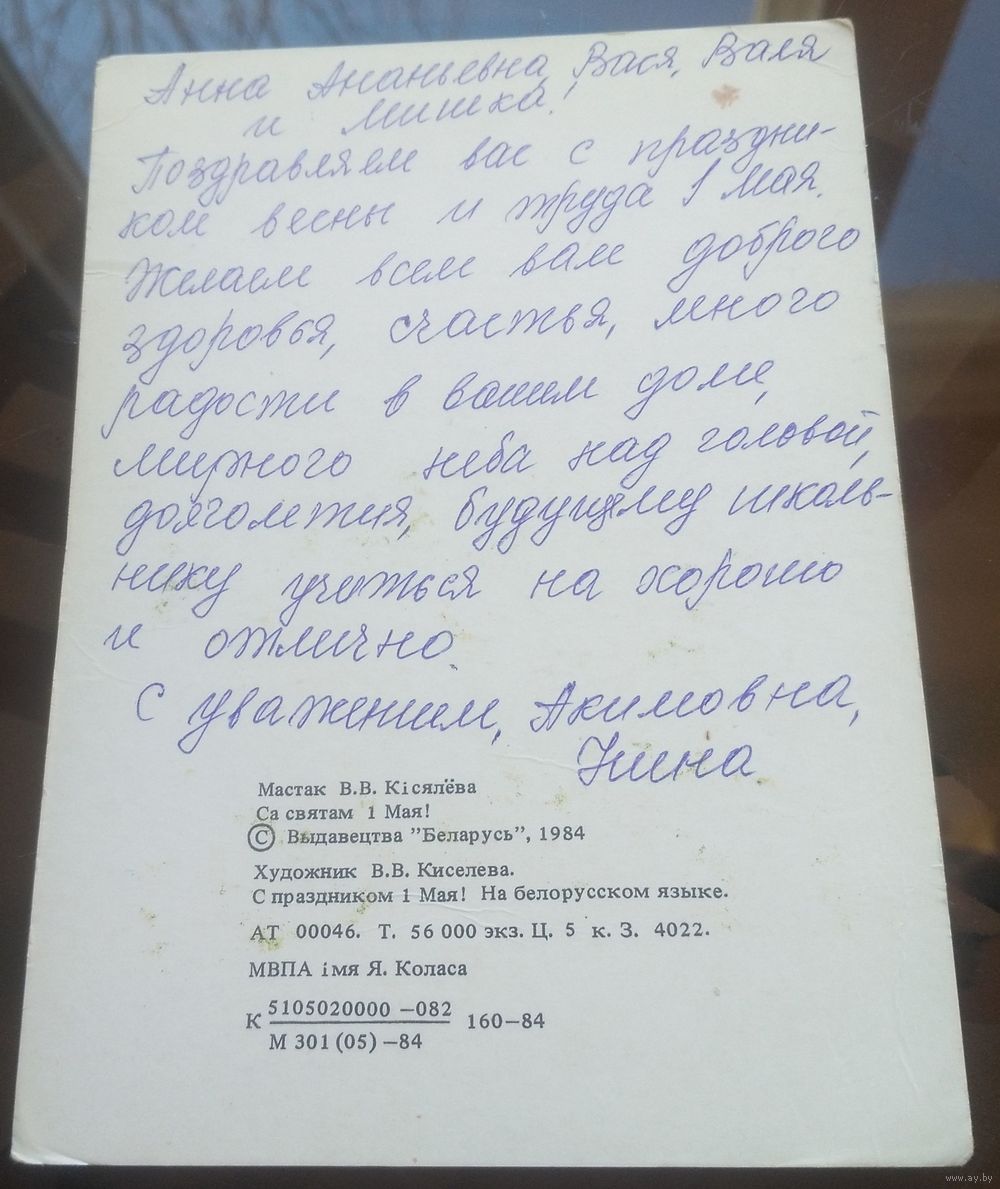 Анна Ананьевна, Вася, Валя
и Мишка!
Поздравляем вас с праздни-
ком весны и труда 1 Мая.
Желаем всем вам доброго
здоровья, счастья, много
радости в вашем доме,
мирного неба над головой,
долголетия, будущему школь-
нику учиться на хорошо
и отлично.
С уважением, Акимовна,
Нина
Мастак В.В. Кісялёва
Са святам 1 Мая!
© Выдавецтва "Беларусь", 1984
Художник В.В. Киселева.
С праздником 1 Мая! На белорусском языке.
АТ 00046. Т. 56 000 экз. Ц. 5 к. З. 4022.
МВПА імя Я. Коласа
К 5105020000 –082 160–84
М 301 (05) –84
www.ay.by